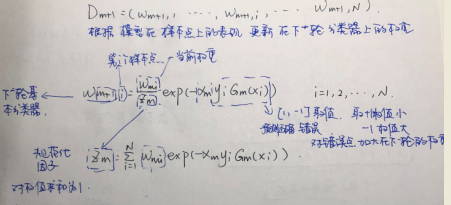 Dm+1=(Wm+1,1, ..... Wm+1,i, ... Wm+1,N).
根据 模型在 样本点上的表现 更新 在下一轮分类器上的权重
第i个样本点 当前权重
下一轮基本分类器. Wm+1,i = Wmi/Zm exp(-αmyiGm(xi)) i=1,2,...,N.
[1,-1]取值. 取+1权值小
错误 -1权值大
对错误点加大在下一轮的权重
规范化因子 Zm = Σ(i=1→N) Wmi exp(-αmyiGm(xi)).
对权值求和为1.